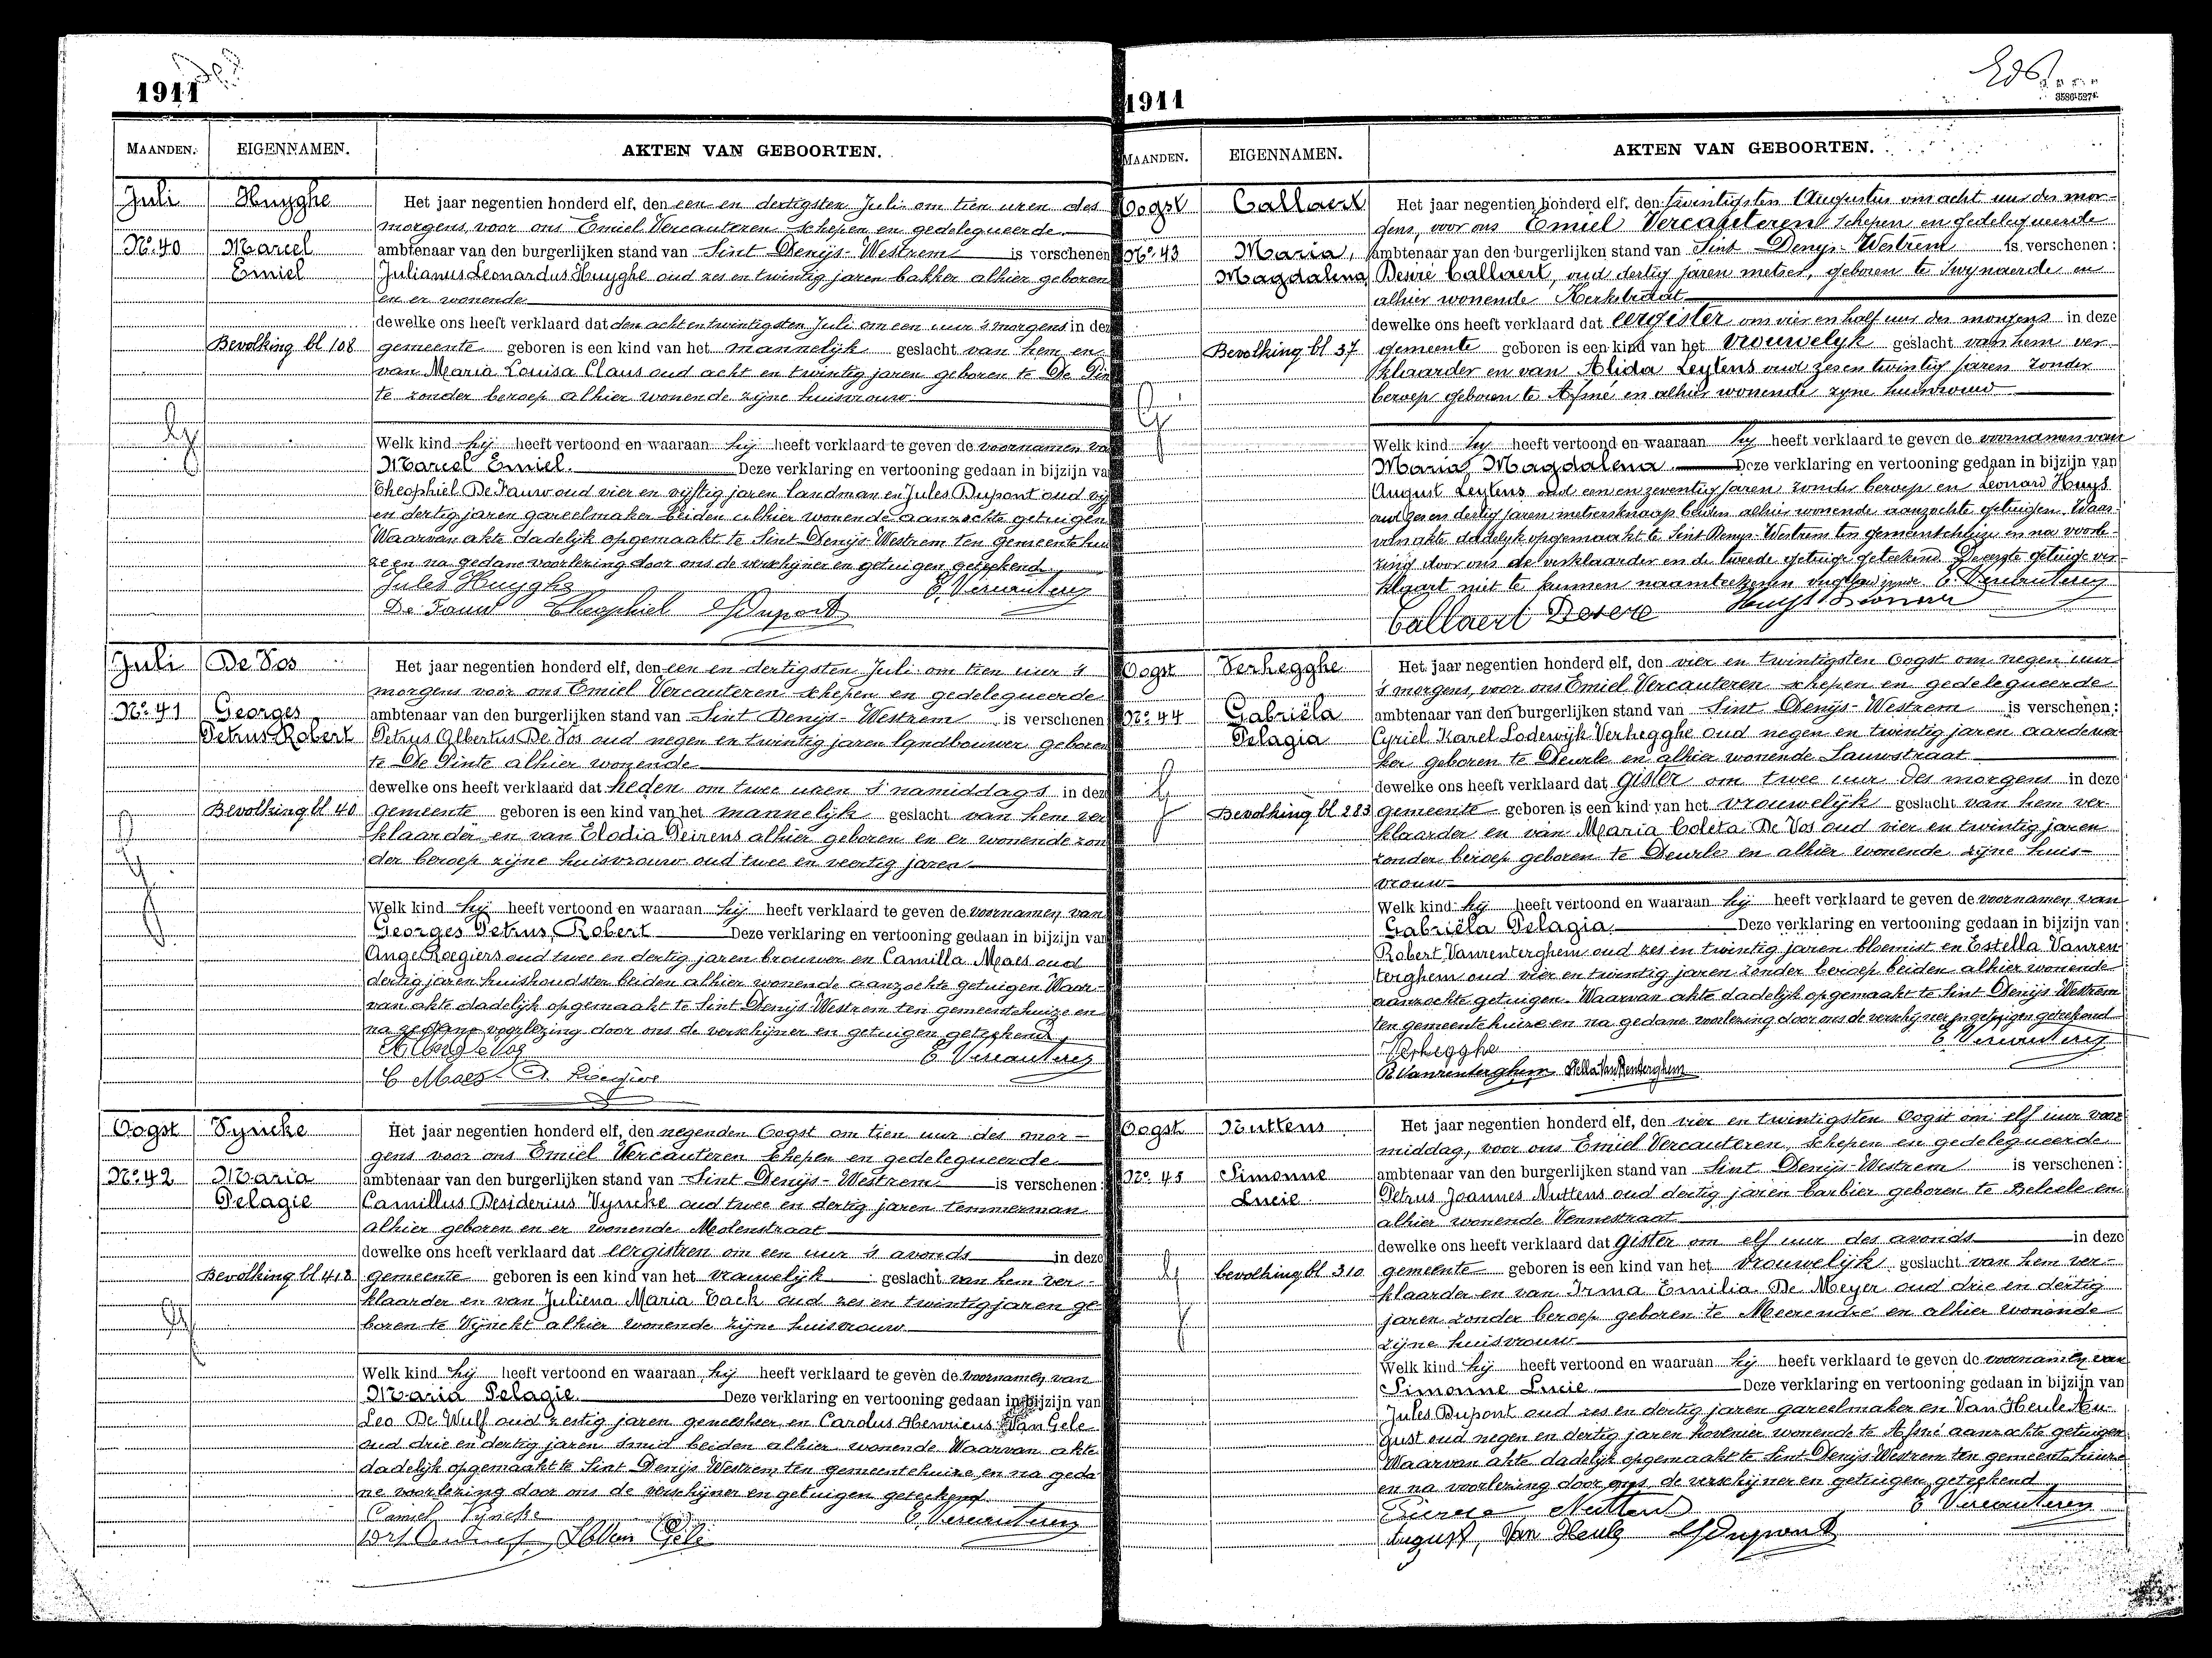 1911
MAANDEN. EIGENNAMEN. AKTEN VAN GEBOORTEN.
Juli Huyghe Het jaar negentien honderd elf, den een en dertigsten Juli om tien uren des
morgens, voor ons Emiel Vercauteren schepen en gedelegueerde
No. 40 Marcel ambtenaar van den burgerlijken stand van Sint Denijs-Westrem is verschenen
Emiel Julianus Leonardus Huyghe oud zes en twintig jaren bakker alhier geboren
en er wonende
dewelke ons heeft verklaard dat den acht en twintigsten Juli om een uur 's morgens in dez
Bevolking bl 108 gemeente geboren is een kind van het mannelijk geslacht van hem en
van Maria Louisa Claus oud acht en twintig jaren geboren te De Pin
te zonder beroep alhier wonende zijne huisvrouw
Welk kind hij heeft vertoond en waaraan hij heeft verklaard te geven de voornamen va
Marcel Emiel. Deze verklaring en vertooning gedaan in bijzijn va
Theophiel De Pauw oud vier en vijftig jaren landman en Jules Dupont oud vij
en dertig jaren gareelmaker beiden alhier wonende aanzochte getuigen
Waarvan akte dadelijk opgemaakt te Sint Denijs-Westrem ten gemeentehui
ze en na gedane voorlezing door ons de verschijner en getuigen geteekend.
Jules Huyghe E. Vercauteren
De Pauw Theophiel J Dupont
Juli De Vos Het jaar negentien honderd elf, den een en dertigsten Juli om tien uur 's
morgens voor ons Emiel Vercauteren schepen en gedelegueerde
No. 41 Georges ambtenaar van den burgerlijken stand van Sint Denijs-Westrem is verschenen
Petrus Robert Petrus Albertus De Vos oud negen en twintig jaren landbouwer geboren
te De Pinte alhier wonende
dewelke ons heeft verklaard dat heden om twee uren 's namiddags in dez
Bevolking bl 40 gemeente geboren is een kind van het mannelijk geslacht van hem ver
klaarder en van Elodia Peirens alhier geboren en er wonende zon
der beroep zijne huisvrouw oud twee en veertig jaren
Welk kind hij heeft vertoond en waaraan hij heeft verklaard te geven de voornamen van
Georges Petrus, Robert Deze verklaring en vertooning gedaan in bijzijn van
Ange Roegiers oud twee en dertig jaren brouwer en Camilla Maes oud
dertig jaren huishoudster beiden alhier wonende aanzochte getuigen Waar-
van akte dadelijk opgemaakt te Sint Denijs Westrem ten gemeentehuize en
na gedane voorlezing door ons de verschijner en getuigen geteekend.
Alberg De Vos E. Vercauteren
C Maes A. Roegiers
Oogst Vyncke Het jaar negentien honderd elf, den negenden Oogst om tien uur des mor-
gens voor ons Emiel Vercauteren schepen en gedelegueerde
No. 42 Maria ambtenaar van den burgerlijken stand van Sint Denijs-Westrem is verschenen:
Pelagie Camillus Desiderius Vyncke oud twee en dertig jaren temmerman
alhier geboren en er wonende Molenstraat
dewelke ons heeft verklaard dat eergistren om een uur 's avonds in deze
Bevolking bl 418 gemeente geboren is een kind van het vrouwelijk geslacht van hem ver-
klaarder en van Juliena Maria Tack oud zes en twintig jaren ge
boren te Wijnckt alhier wonende zijne huisvrouw
Welk kind hij heeft vertoond en waaraan hij heeft verklaard te geven de voornamen van
Maria Pelagie Deze verklaring en vertooning gedaan in bijzijn van
Leo De Wulf oud zestig jaren geneesheer en Carolus Henricus Van Gele
oud drie en dertig jaren smid beiden alhier wonende Waarvan akte
dadelijk opgemaakt te Sint Denijs Westrem ten gemeentehuize en na geda
ne voorlezing door ons de verschijner en getuigen geteekend
Camiel Vyncke E. Vercauteren
Van Gele
1911
MAANDEN. EIGENNAMEN. AKTEN VAN GEBOORTEN.
Oogst Callaert Het jaar negentien honderd elf, den twintigsten Augustus om acht uur des mor-
gens, voor ons Emiel Vercauteren schepen en gedelegueerde
No. 43 Maria, ambtenaar van den burgerlijken stand van Sint Denys-Westrem is verschenen:
Magdalena Desiré Callaert, oud dertig jaren metser, geboren te Swynaerde en
alhier wonende Kerkstraat
dewelke ons heeft verklaard dat eergister om vier en half uur des morgens in deze
Bevolking bl 37 gemeente geboren is een kind van het vrouwelyk geslacht van hem ver-
klaarder en van Alida Leytens oud zes en twintig jaren zonder
beroep geboren te Afsné en alhier wonende zyne huisvrouw
Welk kind hy heeft vertoond en waaraan hy heeft verklaard te geven de voornamen van
Maria, Magdalena Deze verklaring en vertooning gedaan in bijzijn van
August Leytens oud een en zeventig jaren zonder beroep en Leonard Huys
oud zes en dertig jaren metserknaap beiden alhier wonende aanzochte getuigen. Waar-
van akte dadelyk opgemaakt te Sint Denys-Westrem ten gemeentehuize en na voorle-
zing door ons de verklaarder en de tweede getuige geteekend. De eerste getuige ver-
klaart niet te kunnen naamteekenen E. Vercauteren
Callaert Desere Huys Leonar
Oogst Verhegghe Het jaar negentien honderd elf, den vier en twintigsten Oogst om negen uur
's morgens, voor ons Emiel Vercauteren schepen en gedelegueerde
No. 44 Gabriëla ambtenaar van den burgerlijken stand van Sint Denijs-Westrem is verschenen:
Pelagia Cyriel Karel Lodewijk Verhegghe oud negen en twintig jaren aardewer
ker geboren te Deurle en alhier wonende Lauwstraat
dewelke ons heeft verklaard dat gister om twee uur des morgens in deze
Bevolking bl 283 gemeente geboren is een kind van het vrouwelijk geslacht van hem ver-
klaarder en van Maria Coleta De Vos oud vier en twintig jaren
zonder beroep geboren te Deurle en alhier wonende zijne huis-
vrouw
Welk kind hij heeft vertoond en waaraan hij heeft verklaard te geven de voornamen van
Gabriëla Pelagia. Deze verklaring en vertooning gedaan in bijzijn van
Robert Vanrenterghem oud zes en twintig jaren bloemist en Estella Vanren
terghem oud vier en twintig jaren zonder beroep beiden alhier wonende
aanzochte getuigen. Waarvan akte dadelijk opgemaakt te Sint Denijs Westrem
ten gemeentehuize en na gedane voorlezing door ons de verschijner en getuigen geteekend
Verhegghe E. Vercauteren
R Vanrenterghem Stella Van Renterghem
Oogst Nuttens Het jaar negentien honderd elf, den vier en twintigsten Oogst om elf uur voor
middag, voor ons Emiel Vercauteren, schepen en gedelegueerde
No. 45 Simonne ambtenaar van den burgerlijken stand van Sint Denijs-Westrem is verschenen:
Lucie Petrus Joannes Nuttens oud dertig jaren barbier geboren te Belsele en
alhier wonende Vennestraat
dewelke ons heeft verklaard dat gister om elf uur des avonds in deze
bevolking bl 310 gemeente geboren is een kind van het vrouwelijk geslacht van hem ver-
klaarder en van Irma Emilia De Meyer oud drie en dertig
jaren zonder beroep geboren te Meerendre en alhier wonende
zijne huisvrouw
Welk kind hij heeft vertoond en waaraan hij heeft verklaard te geven de voornamen van
Simonne Lucie Deze verklaring en vertooning gedaan in bijzijn van
Jules Dupont oud zes en dertig jaren gareelmaker en Van Heule Au-
gust oud negen en dertig jaren hovenier wonende te Afsné aanzochte getuigen
Waarvan akte dadelijk opgemaakt te Sint Denijs Westrem ten gemeentehuize
en na voorlezing door ons, de verschijner en getuigen geteekend
Nuttens E. Vercauteren
August, Van Heule J Dupont